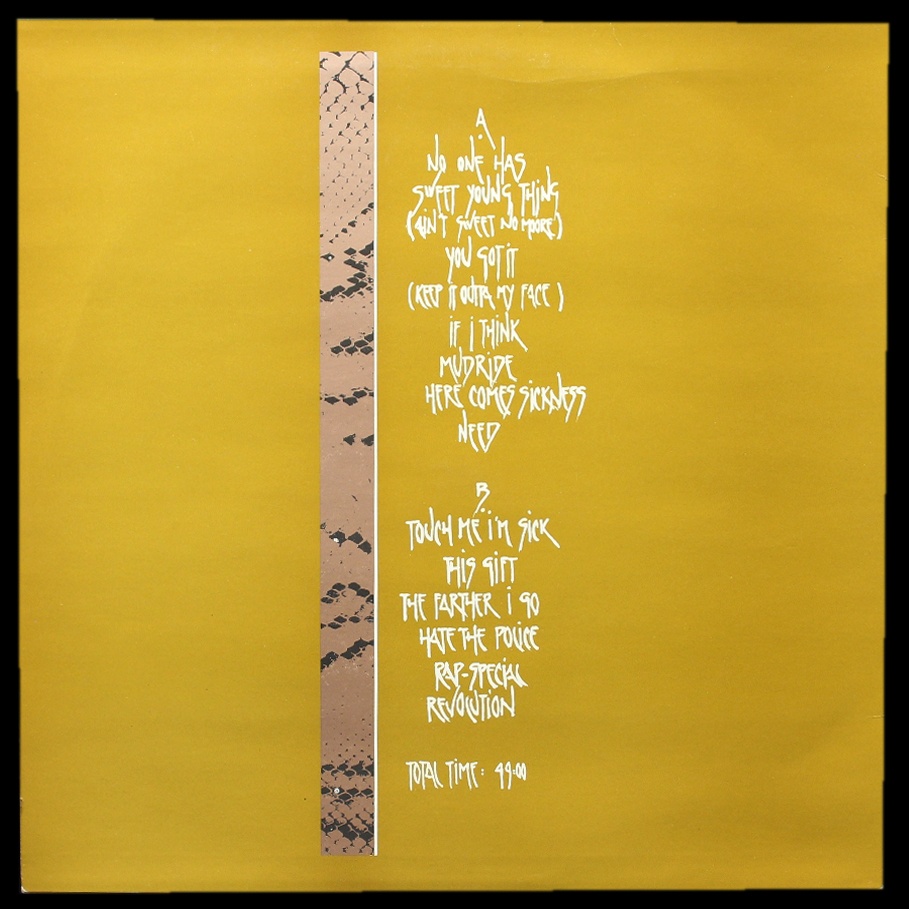 A.
NO ONE HAS
SWEET YOUNG THING
(AIN'T SWEET NO MOORE)
YOU GOT IT
(KEEP IT OUTTA MY FACE)
IF I THINK
MUDRIDE
HERE COMES SICKNESS
NEED
B.
TOUCH ME I'M SICK
THIS GIFT
THE FARTHER I GO
HATE THE POLICE
RAP-SPECIAL
REVOLUTION
TOTAL TIME: 49:00